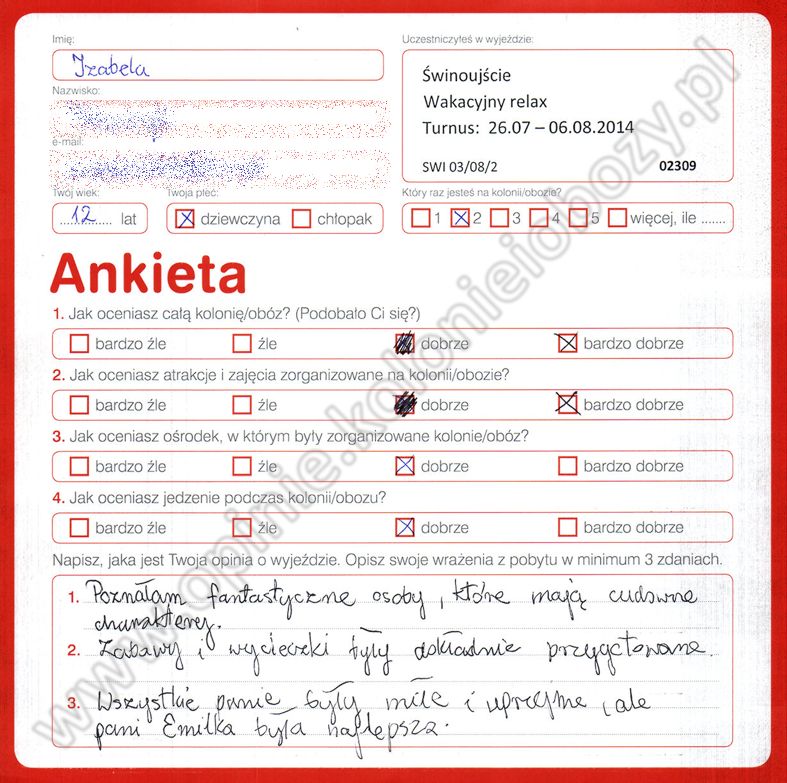 Imię:
Izabela
Nazwisko:
e-mail:
Twój wiek:
12 lat
Twoja płeć:
dziewczyna chłopak
Uczestniczyłeś w wyjeździe:
Świnoujście
Wakacyjny relax
Turnus: 26.07 – 06.08.2014
SWI 03/08/2 02309
Który raz jesteś na kolonii/obozie?
1 2 3 4 5 więcej, ile .......
Ankieta
1. Jak oceniasz całą kolonię/obóz? (Podobało Ci się?)
bardzo źle źle dobrze bardzo dobrze
2. Jak oceniasz atrakcje i zajęcia zorganizowane na kolonii/obozie?
bardzo źle źle dobrze bardzo dobrze
3. Jak oceniasz ośrodek, w którym były zorganizowane kolonie/obóz?
bardzo źle źle dobrze bardzo dobrze
4. Jak oceniasz jedzenie podczas kolonii/obozu?
bardzo źle źle dobrze bardzo dobrze
Napisz, jaka jest Twoja opinia o wyjeździe. Opisz swoje wrażenia z pobytu w minimum 3 zdaniach.
1. Poznałam fantastyczne osoby, które mają cudowne
charaktery.
2. Zabawy i wycieczki były dokładnie przygotowane.
3. Wszystkie panie były miłe i uprzejme, ale
pani Emilka była najlepsza.
www.opinie.kolonieiobozy.pl